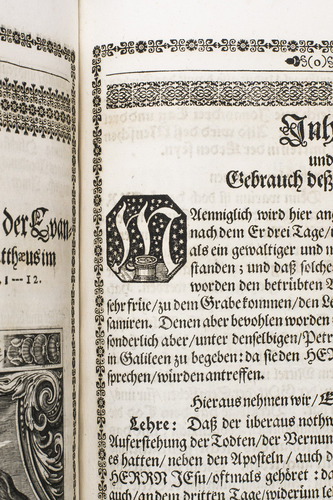 der Evan⸗
tthæus im
1–12.
❧(o)
Inh
und
Gebrauch deß
MAenniglich wird hier an
nach dem Er drei Tage/
als ein gewaltiger und
standen; und daß solche
worden den betrübten
sehr früe/zu dem Grabe kommen/den Le
samiren. Denen aber bevohlen worden
sonderlich aber/unter denselbigen/Petr
in Galileen zu begeben: da sie den HE
sprechen/würden antreffen.
Hieraus nehmen wir/
Lehre: Daß der überaus noth
Auferstehung der Todten/der Vernun
es hatten/neben den Aposteln/auch d
HERRN JESu/oftmals gehöret: da
auch/an dem dritten Tage/widerum